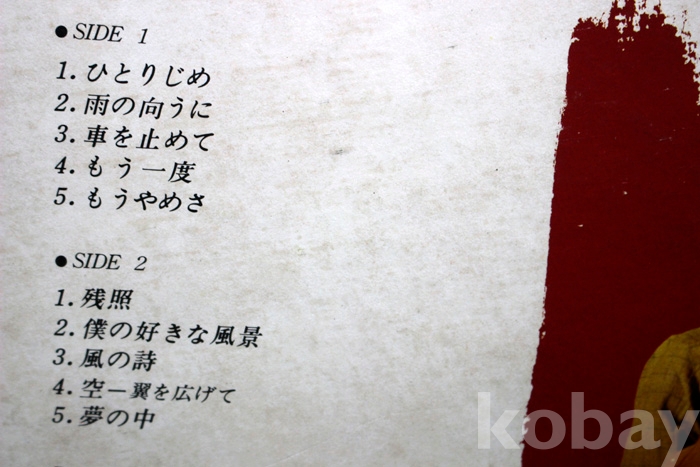 ● SIDE 1
1. ひとりじめ
2. 雨の向うに
3. 車を止めて
4. もう一度
5. もうやめさ
● SIDE 2
1. 残照
2. 僕の好きな風景
3. 風の詩
4. 空―翼を広げて
5. 夢の中
kobay